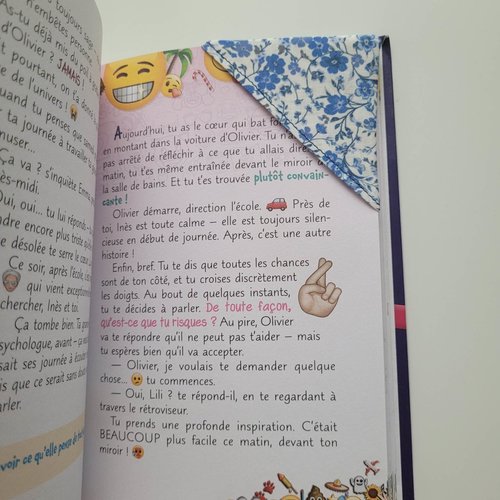 toujours sage
n'embêtes personne
As-tu déjà mis du poil
d'Olivier ? JAMAIS !
t pourtant, on t'a donné
de l'univers !
quand tu penses que
ta journée à travailler
muser...
Ça va ? s'inquiète Emma
ès-midi.
Oui, oui... tu lui réponds
ndre encore plus triste
désolée te serre le cœur
Ce soir, après l'école, c'est
qui vient exceptionne
chercher, Inès et toi.
Ça tombe bien. Ta gran
psychologue, avant
sait ses journée à écouter
is que ce serait sans dout
arler.
voir ce qu'elle pense de
Aujourd'hui, tu as le cœur qui bat for
en montant dans la voiture d'Olivier. Tu n'a
pas arrêté de réfléchir à ce que tu allais dire
matin, tu t'es même entraînée devant le miroir d
la salle de bains. Et tu t'es trouvée plutôt convain-
cante !
Olivier démarre, direction l'école. Près de
toi, Inès est toute calme – elle est toujours silen-
cieuse en début de journée. Après, c'est une autre
histoire !
Enfin, bref. Tu te dis que toutes les chances
sont de ton côté, et tu croises discrètement
les doigts. Au bout de quelques instants,
tu te décides à parler. De toute façon,
qu'est-ce que tu risques ? Au pire, Olivier
va te répondre qu'il ne peut pas t'aider – mais
tu espères bien qu'il va accepter.
— Olivier, je voulais te demander quelque
chose... tu commences.
— Oui, Lili ? te répond-il, en te regardant à
travers le rétroviseur.
Tu prends une profonde inspiration. C'était
BEAUCOUP plus facile ce matin, devant ton
miroir !